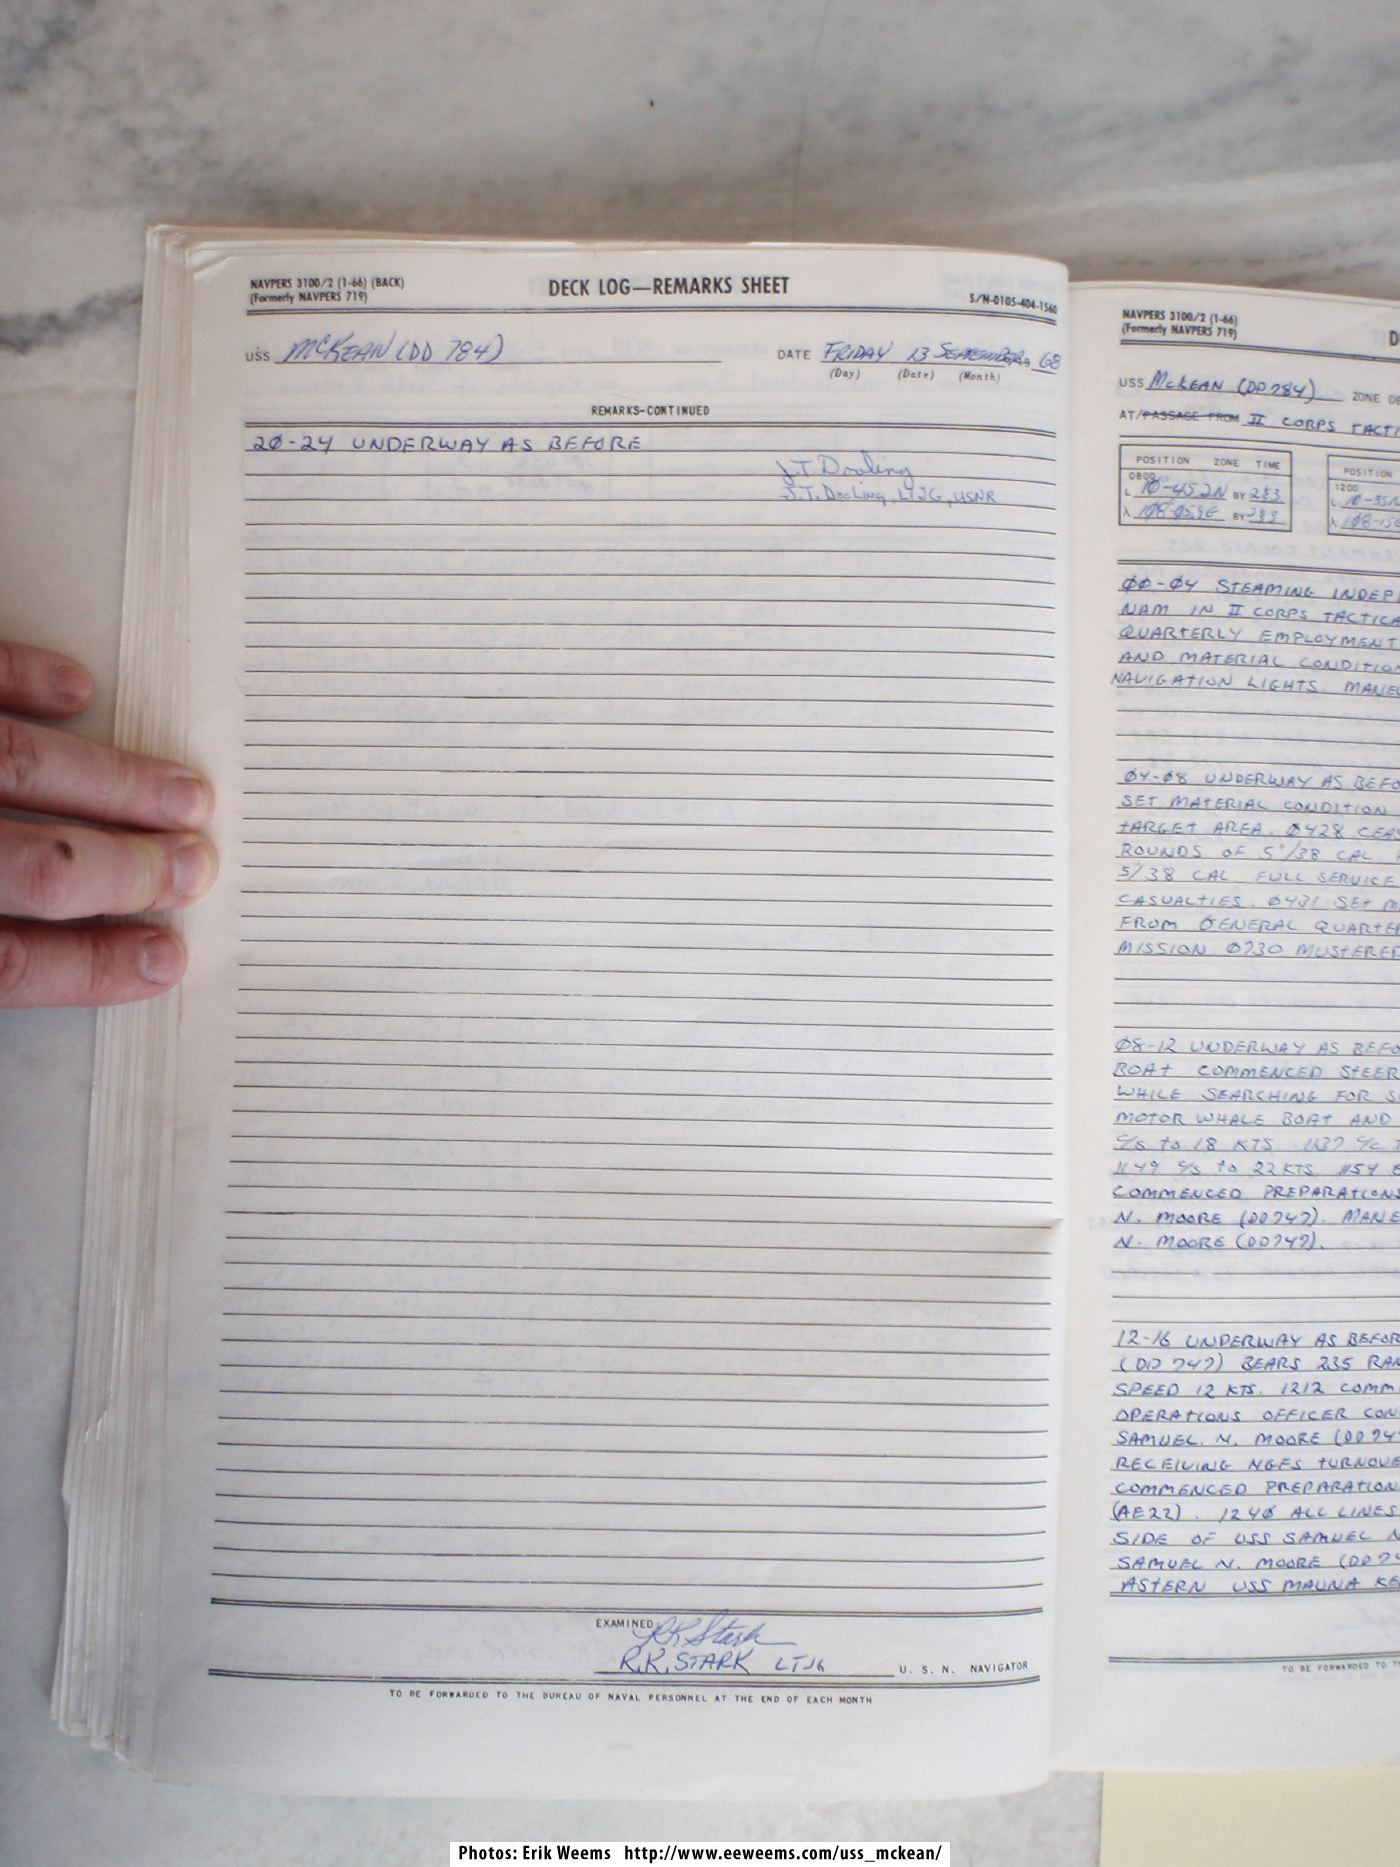 NAVPERS 3100/2 (1-66) (BACK)
(Formerly NAVPERS 719)
DECK LOG—REMARKS SHEET
S/N-0105-404-1560
USS McKEAN (DD 784)
DATE FRIDAY 13 SEPTEMBER, 68
(Day) (Date) (Month)
REMARKS-CONTINUED
20-24 UNDERWAY AS BEFORE
J.T. Dooling
J.T. DOOLING, LTJG, USNR
EXAMINED:
R.K. Stark
R.K. STARK LTJG
U. S. N. NAVIGATOR
TO BE FORWARDED TO THE BUREAU OF NAVAL PERSONNEL AT THE END OF EACH MONTH
NAVPERS 3100/2 (1-66)
(Formerly NAVPERS 719)
D
USS McKEAN (DD784) ZONE DE
AT/PASSAGE FROM II CORPS TACTI
POSITION ZONE TIME
0800
L 10-45.2N BY 2&3
λ 108-05.9E BY 2&3
POSITION
1200
L 10-35
λ 108-15
00-04 STEAMING INDEP
NAM IN II CORPS TACTICA
QUARTERLY EMPLOYMENT
AND MATERIAL CONDITION
NAVIGATION LIGHTS. MANEU
04-08 UNDERWAY AS BEFO
SET MATERIAL CONDITION
TARGET AREA. 0428 CEAS
ROUNDS OF 5"/38 CAL.
5/38 CAL FULL SERVICE
CASUALTIES. 0431 SET M
FROM GENERAL QUARTER
MISSION. 0730 MUSTERED
08-12 UNDERWAY AS BEFO
BOAT COMMENCED STEER
WHILE SEARCHING FOR S
MOTOR WHALE BOAT AND
C/S to 18 KTS 1137 C/C
1149 C/S to 22 KTS 1154
COMMENCED PREPARATIONS
N. MOORE (DD747). MANE
N. MOORE (DD747).
12-16 UNDERWAY AS BEFOR
(DD 747) BEARS 235 RAN
SPEED 12 KTS. 1212 COMM
OPERATIONS OFFICER CON
SAMUEL. N. MOORE (DD74
RECEIVING NGFS TURNOVE
COMMENCED PREPARATION
(AE22). 1240 ALL LINES
SIDE OF USS SAMUEL N
SAMUEL N. MOORE (DD7
ASTERN USS MAUNA KE
TO BE FORWARDED TO TH
Photos: Erik Weems http://www.eeweems.com/uss_mckean/